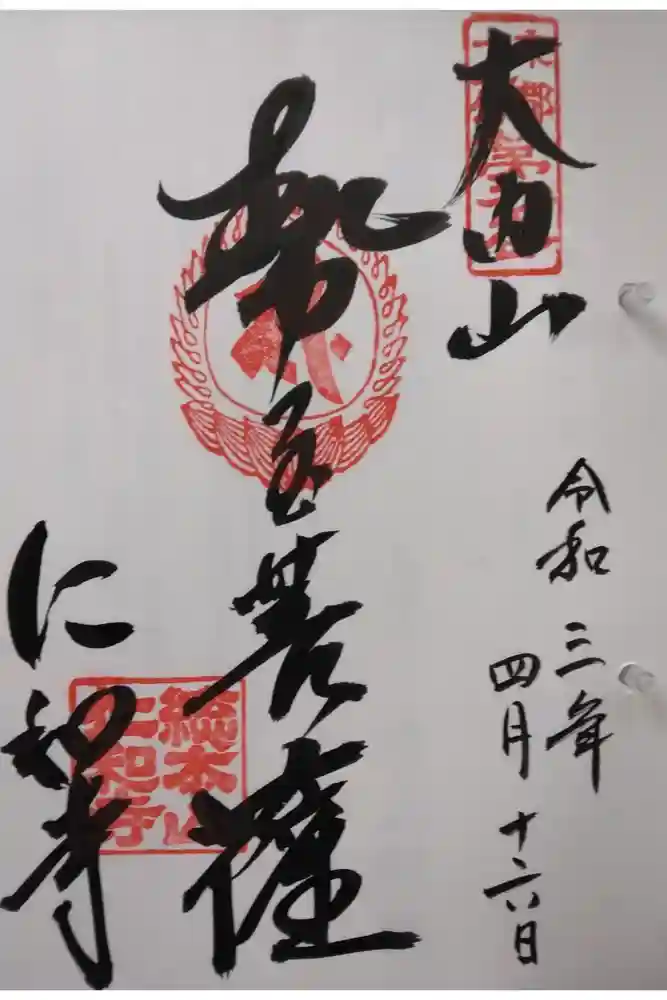 大内山
勢至菩薩
仁和寺
総本山
仁和寺
令和三年
四月十六日